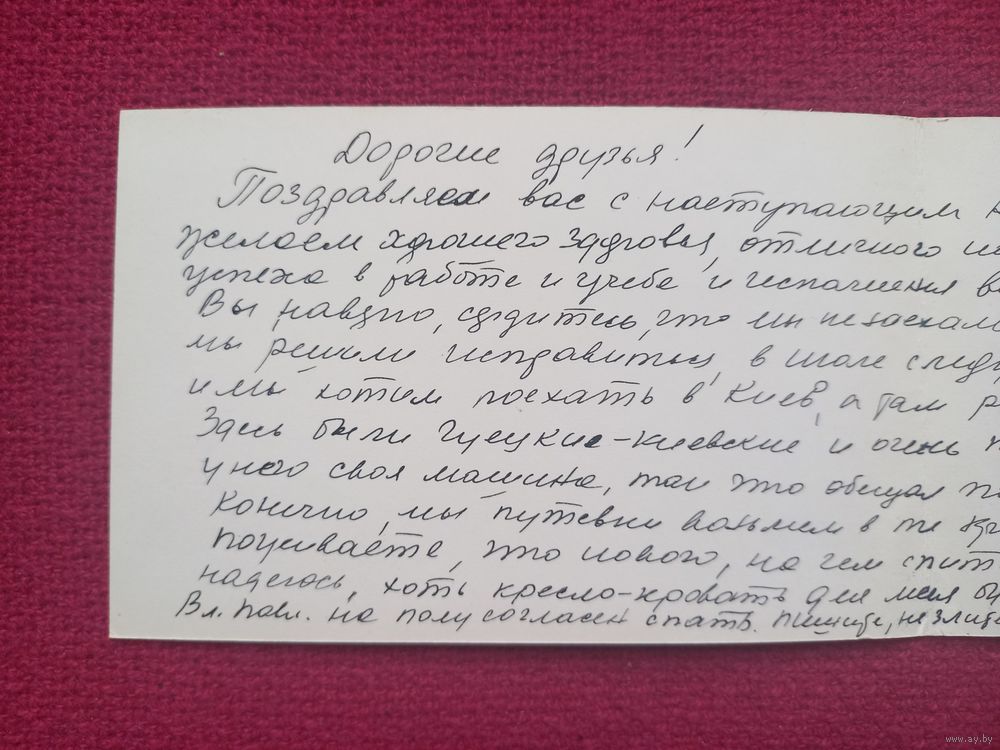 Дорогие друзья!
Поздравляем вас с наступающим
желаем хорошего здоровья, отличного
успеха в работе и учебе и исполнения
Вы, наверно, сердитесь, что мы не заехали
мы решили исправиться, в июле
и мы хотим поехать в Киев, а там
Здесь были Гурецкие-киевские и очень
у него своя машина, так что обещал
Конечно, мы путевки возьмем в те
поживаете, что нового, на чем
надеюсь, хоть кресло-кровать для меня
Вл. Павл. на полу согласен спать. Пишите, не
www.ay.by